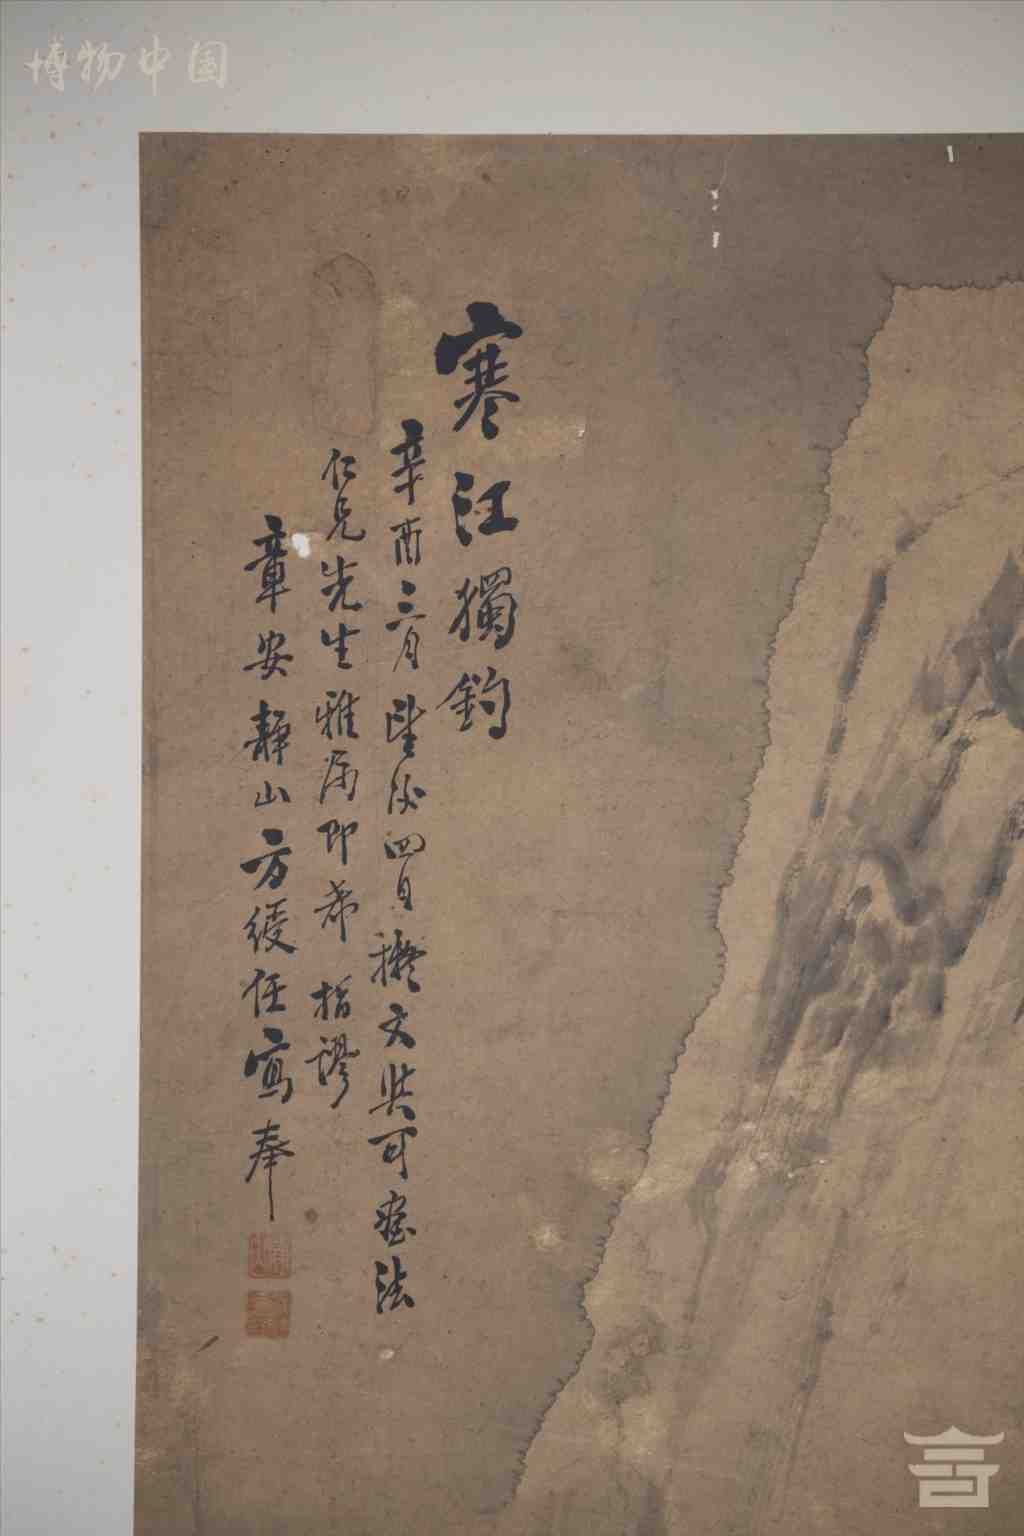 博物中国
寒江獨釣
辛酉三月望後四日擬文與可畫法
仁兄先生雅屬即希指謬
章安靜山方綬任寫奉